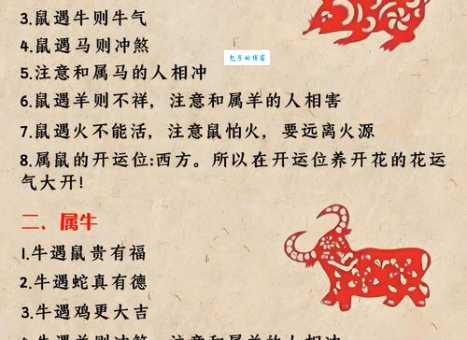 3.鼠遇牛则牛气
4.鼠遇马则冲煞
5.注意和属马的人相冲
6.鼠遇羊则不祥，注意和属羊的人相害
7.鼠遇火不能活，注意鼠怕火，要远离火源
8.属鼠的开运位:西方。所以在开运位养开花的花运
气大开!
二、属牛
1.牛遇鼠贵有福
2.牛遇蛇真有德
3.牛遇鸡更大吉